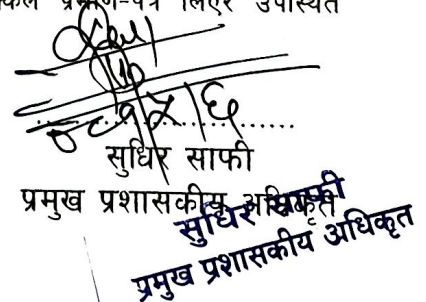 प्रमाण-पत्र लिएर उपस्थित
सुधिर साफी
प्रमुख प्रशासकीय अधिकृत
सुधिर साफी
प्रमुख प्रशासकीय अधिकृत